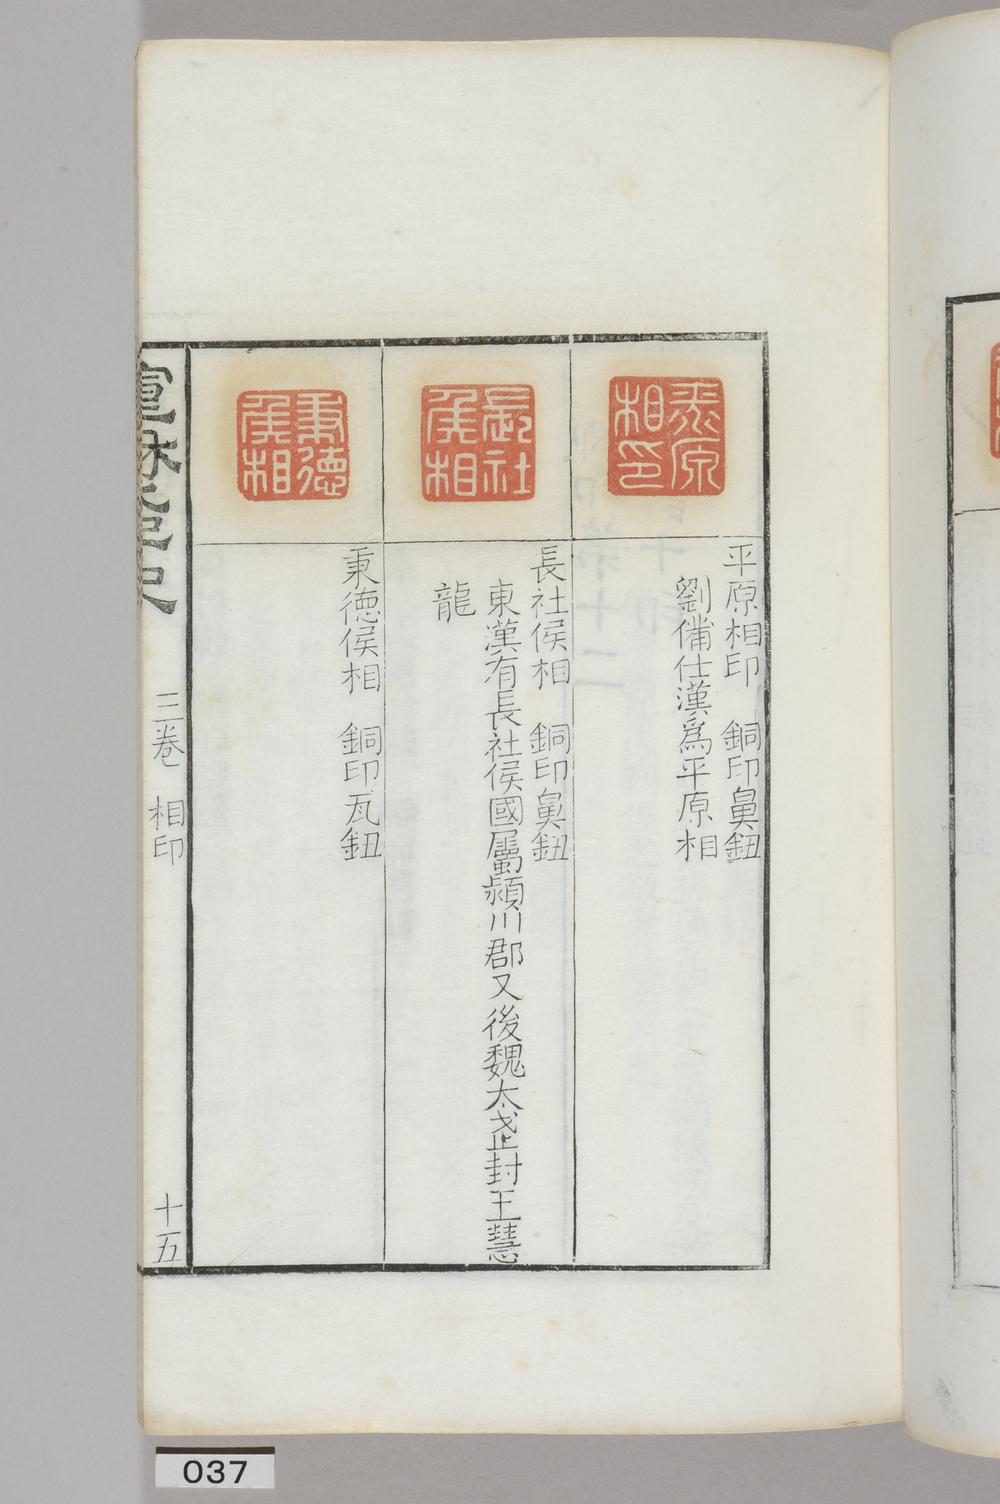 平原相印
平原相印　銅印鼻鈕
劉備仕漢爲平原相
長社侯相
長社侯相　銅印鼻鈕
東漢有長社侯國屬潁川郡又後魏太武封王慧
龍
秉德侯相
秉德侯相　銅印瓦鈕
三卷　相印
十五
037